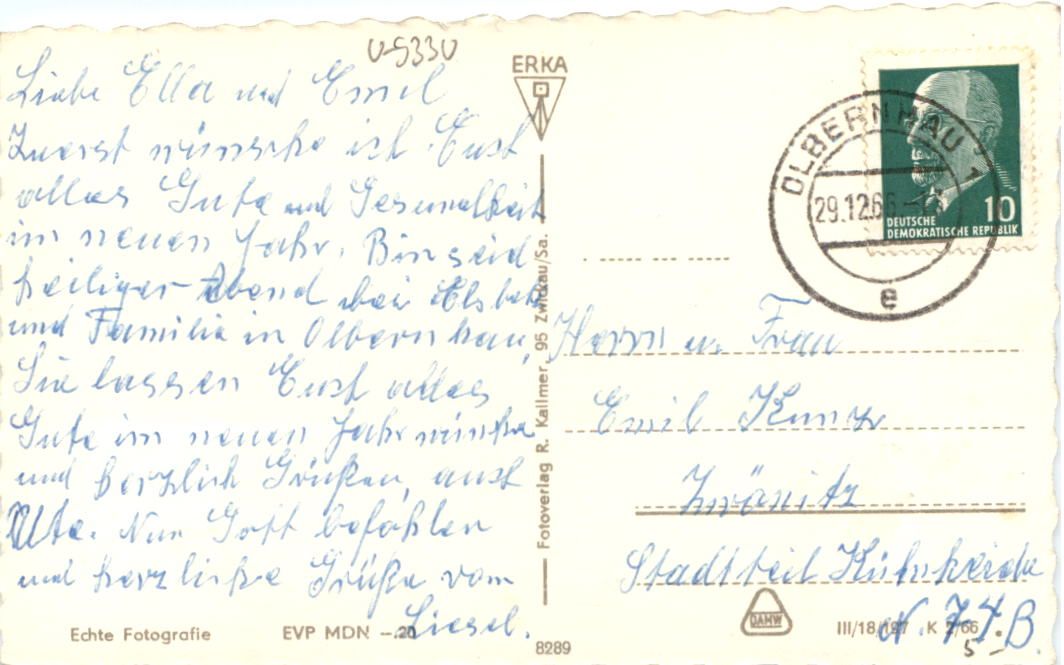 U-5330
Liebe Ella und Emil
Zuerst wünsche ich Euch
alles Gute und Gesundheit
im neuen Jahr. Bin seid
heiliger Abend bei Elsbeth
und Familie in Olbernhau,
Sie lassen Euch alles
Gute im neuen Jahr wünsche
und herzlich Grüßen, auch
Ute. Nun Gott befohlen
und herzliche Grüße vom
Liesel.
Echte Fotografie
EVP MDN -.20
ERKA
Fotoverlag R. Kallmer, 95 Zwickau/Sa.
8289
OLBERNHAU 1
29.12.66
e
10
DEUTSCHE
DEMOKRATISCHE REPUBLIK
Herrn u. Frau
Emil Kunz
Zwönitz
Stadtteil Kühnheide
N. 74. B.
5
DAMW
III/18/197 K 2/66